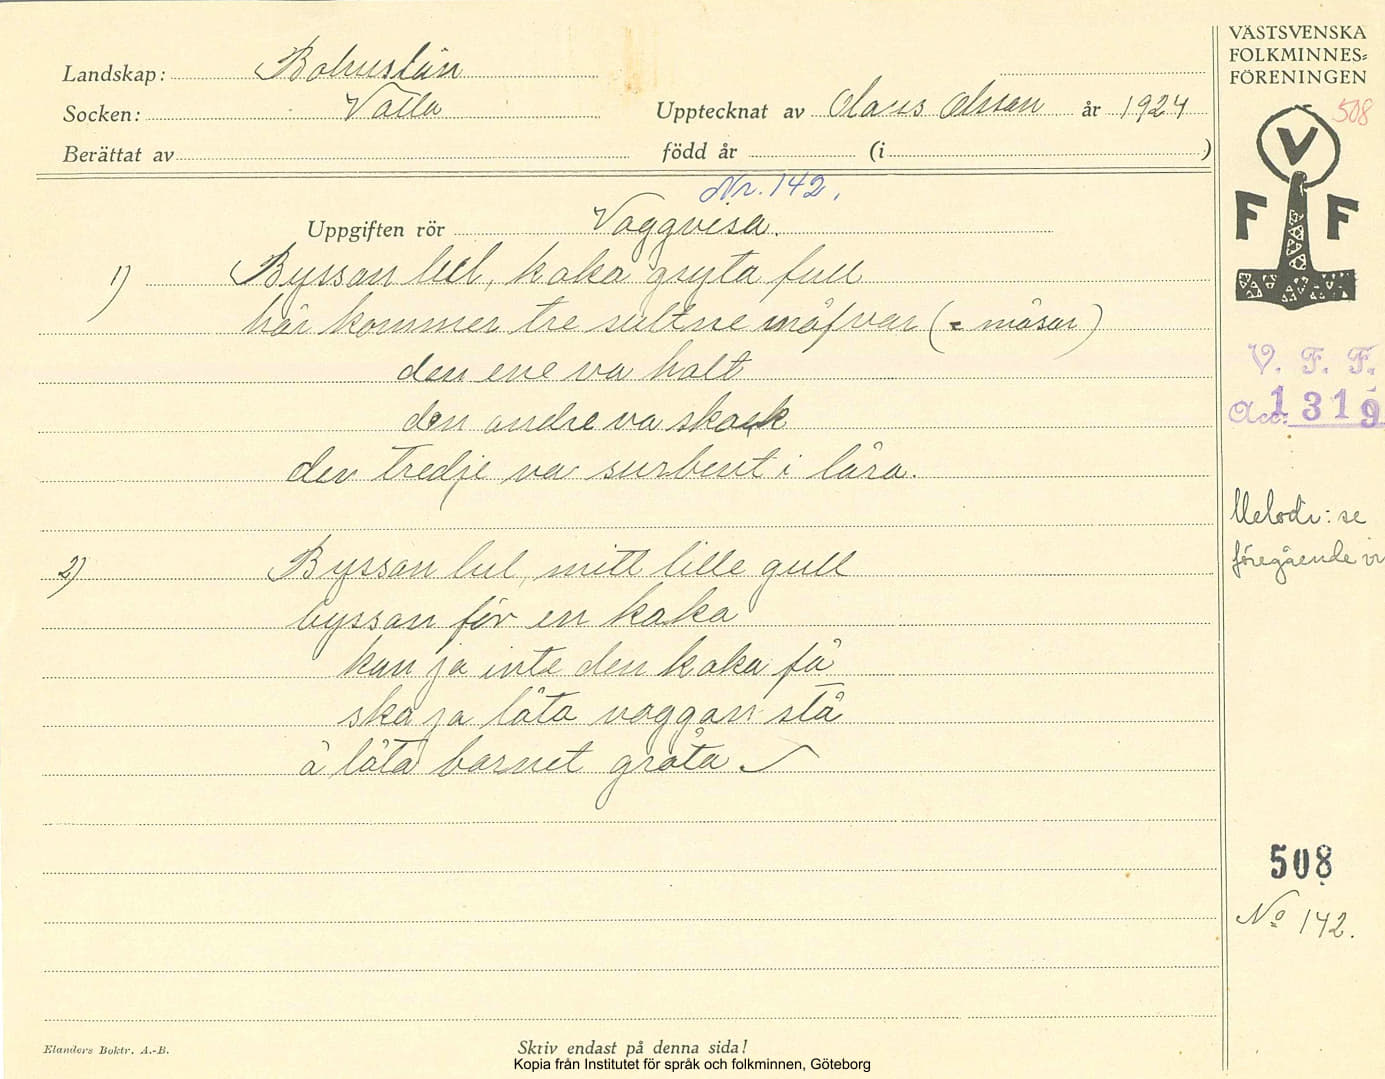 Landskap: Bohuslän
Socken: Valla
Upptecknat av Claus Olsson år 1924
Berättat av
född år (i )
Nr. 142.
Uppgiften rör Vaggvisa.
1) Byssan lul, koka gryta full
här kommer tre sultne måfvar (= måsar)
den ene va halt
den andre va skack
den tredje va surbent i låra.
2) Byssan lul, mitt lille gull
byssan för en kaka
kan ja inte den kaka få
ska ja låta vaggan stå
å låta barnet gråta.
Elanders Boktr. A.-B.
Skriv endast på denna sida!
Kopia från Institutet för språk och folkminnen, Göteborg
VÄSTSVENSKA
FOLKMINNES=
FÖRENINGEN
508
V
F F
V. F. F.
Acc. 1319
Melodi: se
föregående
508
No 142.